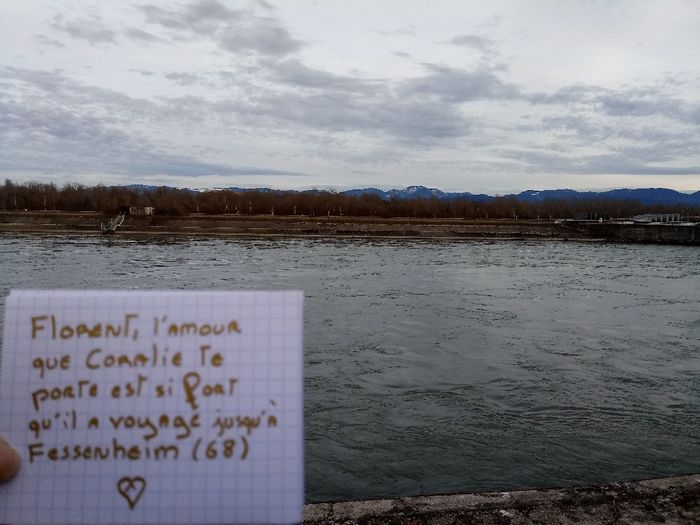 Florent, l'amour
que Coralie te
porte est si fort
qu'il a voyagé jusqu'à
Fessenheim (68)